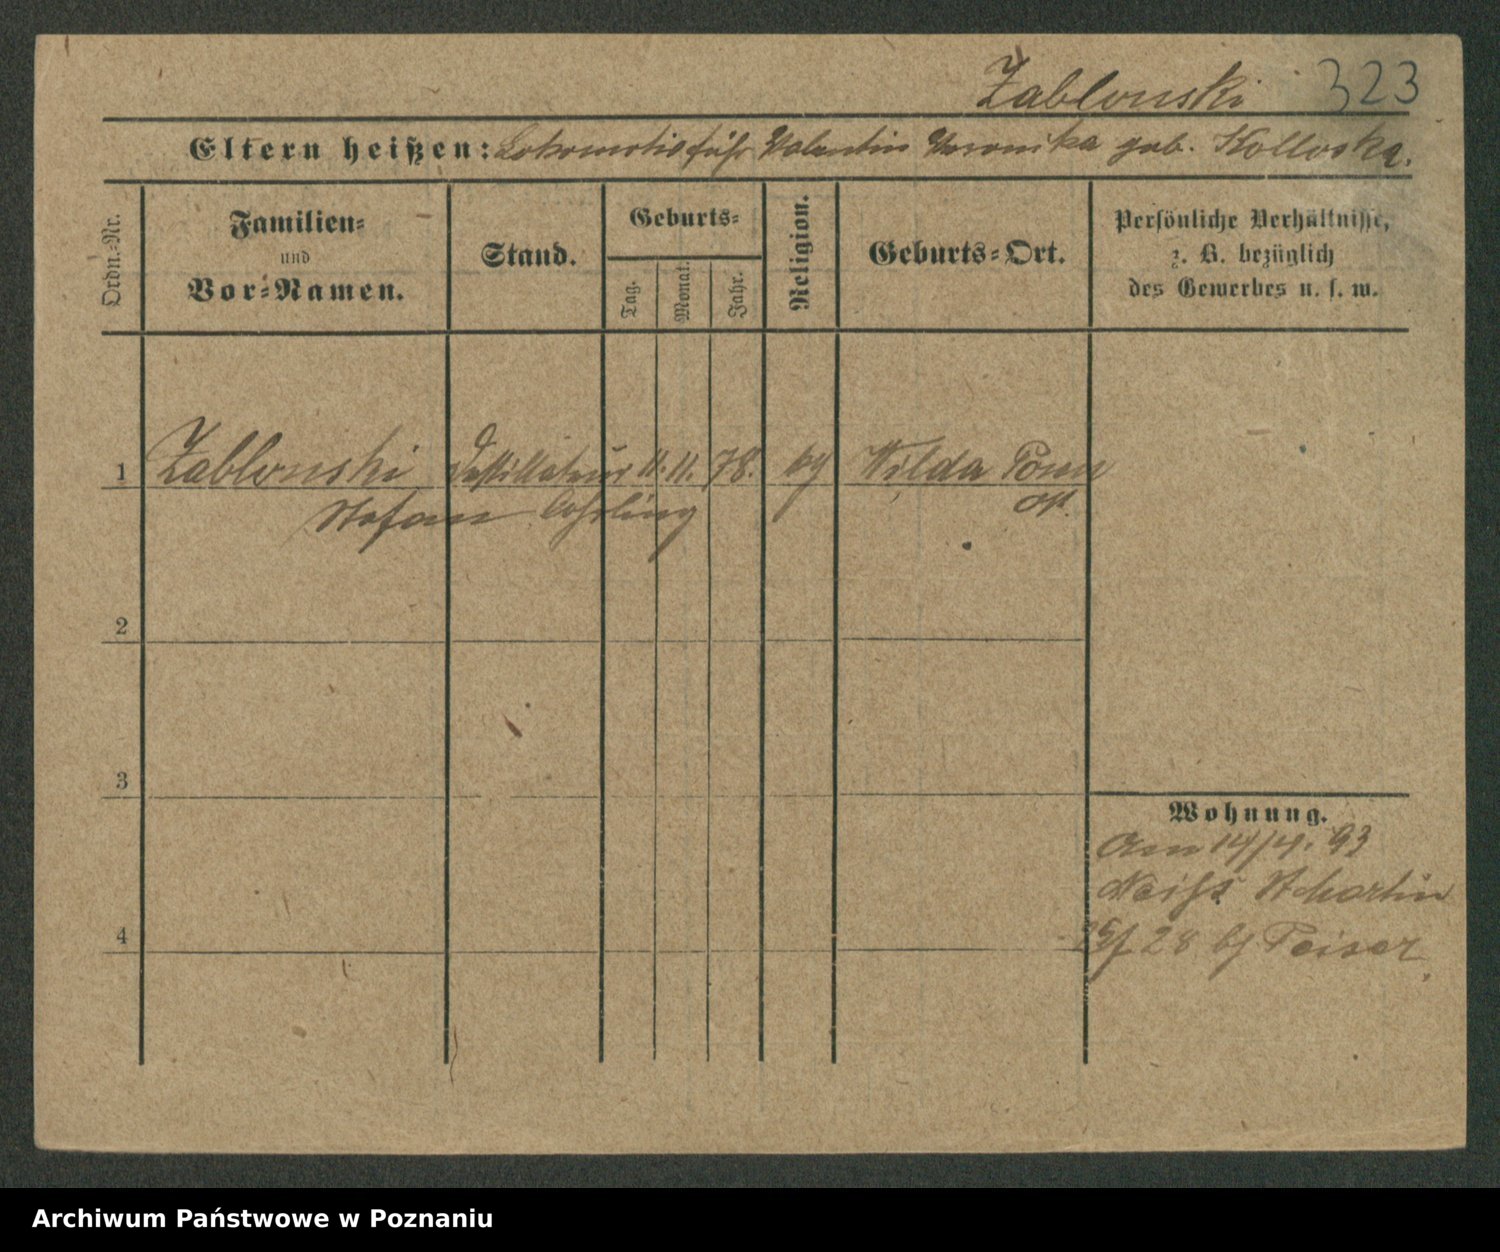 Zablonski 323
Eltern heißen: Lokomotivführ Valentin Veronika geb. Kolloska.
Ordn.-Nr.
Familien-
und
Vor-Namen.
Stand.
Geburts-
Tag.
Monat.
Jahr.
Religion.
Geburts-Ort.
Persönliche Verhältnisse,
z. B. bezüglich
des Gewerbes u. s. w.
1 Zablonski Destillateur 11. 11. 78. Wilda Posen
Stefan Lehrling
2
3
4
Wohnung.
Am 14/4. 93
St Martin
28 Peiser
Archiwum Państwowe w Poznaniu